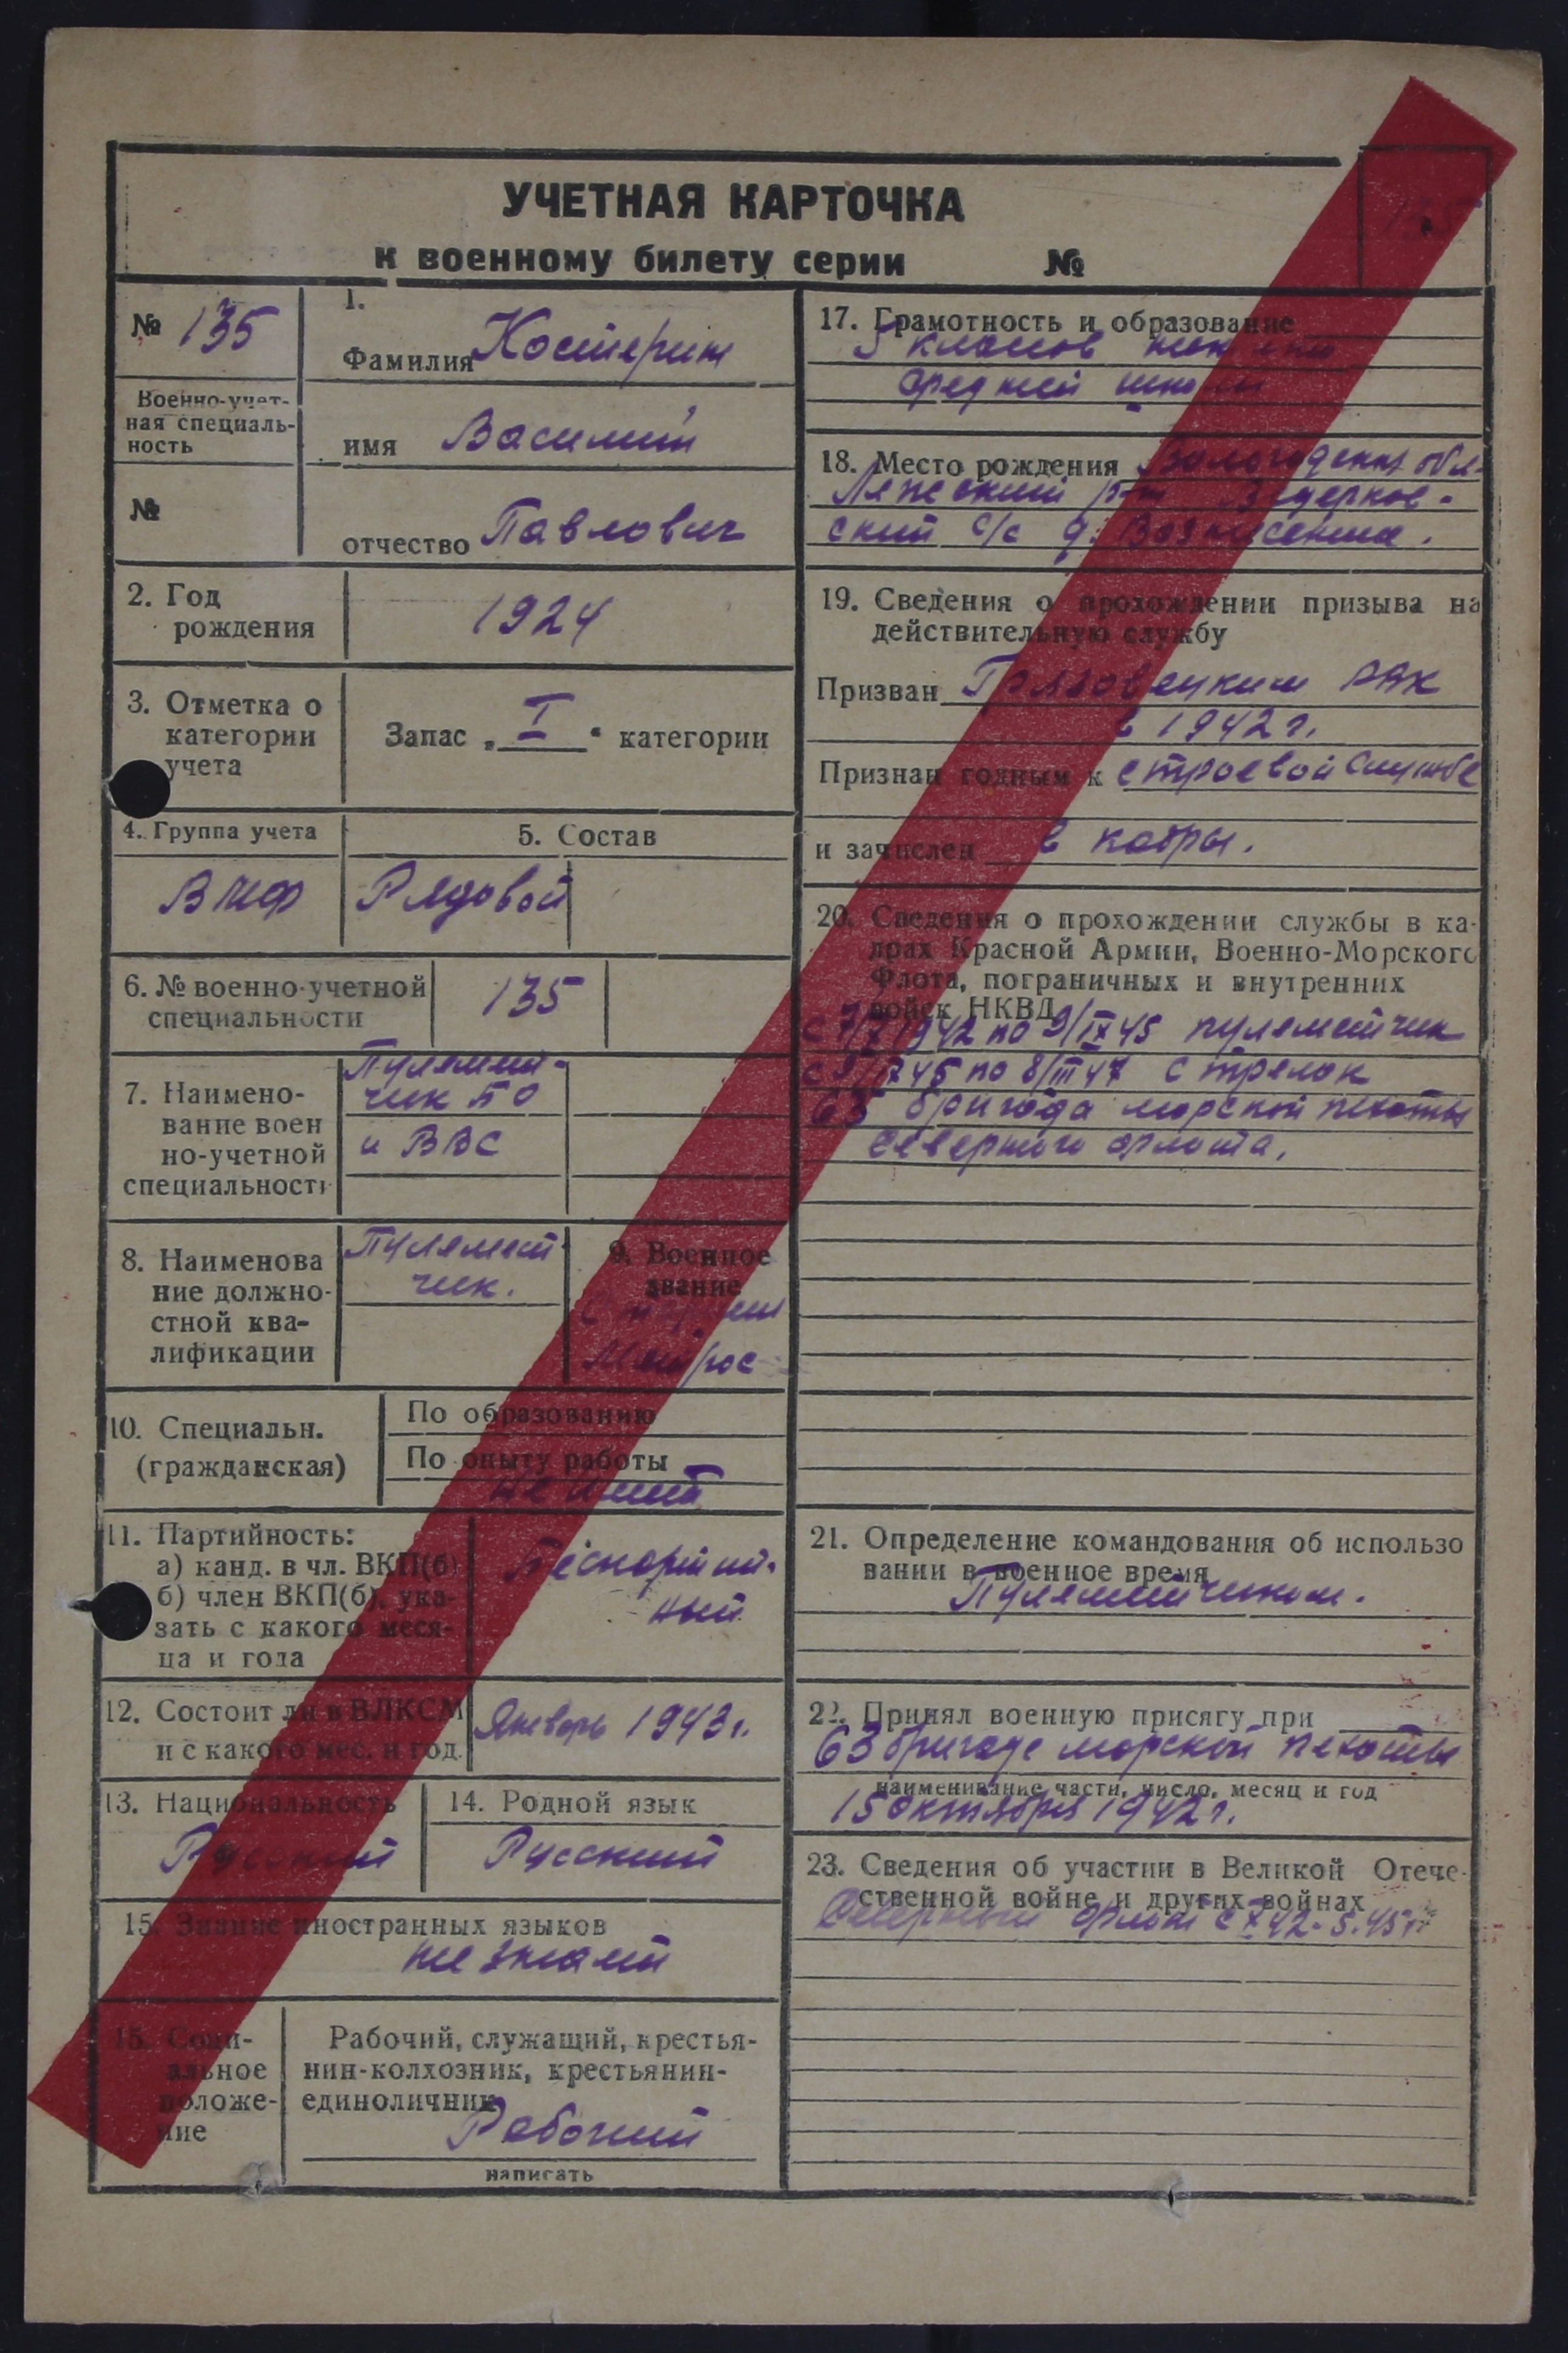 УЧЕТНАЯ КАРТОЧКА
к военному билету серии №
№ 135
1.
Фамилия Костерин
Военно-учет-
ная специаль-
ность
имя Василий
№
отчество Павлович
2. Год
рождения
1924
3. Отметка о
категории
учета
Запас „ I “ категории
4. Группа учета
5. Состав
ВМФ
Рядовой
6. № военно-учетной
специальности
135
7. Наимено-
вание воен
но-учетной
специальності
Пулемет-
чик ПО
и ВВС
8. Наименова
ние должно-
стной ква-
лификации
Пулемет-
чик.
9. Военное
звание
Матрос
10. Специальн.
(гражданская)
По образованию
По опыту работы
не имеет
11. Партийность:
а) канд. в чл. ВКП(б)
б) член ВКП(б), ука-
зать с какого меся-
ца и года
Беспартий-
ный
12. Состоит ли в ВЛКСМ
и с какого мес. и год.
Январь 1943 г.
13. Национальность
Русский
14. Родной язык
Русский
15. Знание иностранных языков
не знает
15. Соци-
альное
положе-
ние
Рабочий, служащий, крестья-
нин-колхозник, крестьянин-
единоличник
Рабочий
написать
17. Грамотность и образование
5 классов
средней школы
18. Место рождения Вологодская обл-
Лежский р-н
ский с/с д. Вознесенье.
19. Сведения о прохождении призыва на
действительную службу
Призван Грязовецким РВК
в 1942 г.
Признан годным к строевой службе
и зачислен в кадры.
20. Сведения о прохождении службы в ка-
драх Красной Армии, Военно-Морского
Флота, пограничных и внутренних
войск НКВД
1942 по 9/IX 45 пулеметчик
с 9/IX 45 по 8/III 47 стрелок
63 бригада морской пехоты
Северного флота.
21. Определение командования об использо
вании в военное время
Пулеметчиком.
22. Принял военную присягу при
63 бригаде морской пехоты
наименивание части, число, месяц и год
15 октября 1942 г.
23. Сведения об участии в Великой Отече-
ственной войне и других войнах
Северный флот с X 42 - 5.45 г.